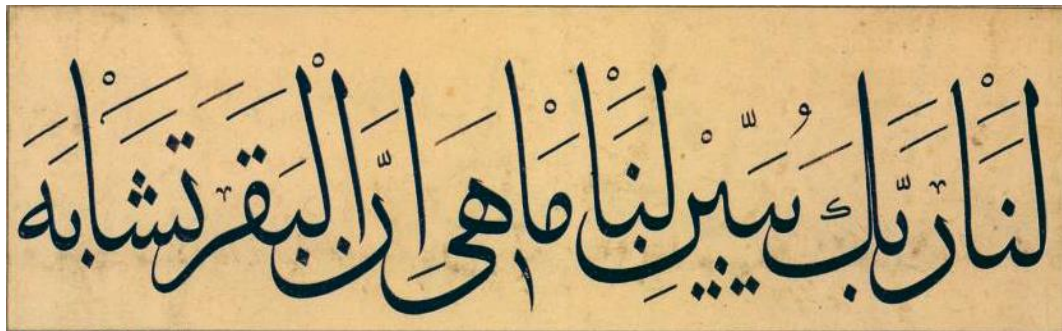 لَنَا رَبَّكَ يُبَيِّنْ لَنَا مَا هِيَ اِنَّ الْبَقَرَ تَشَابَهَ